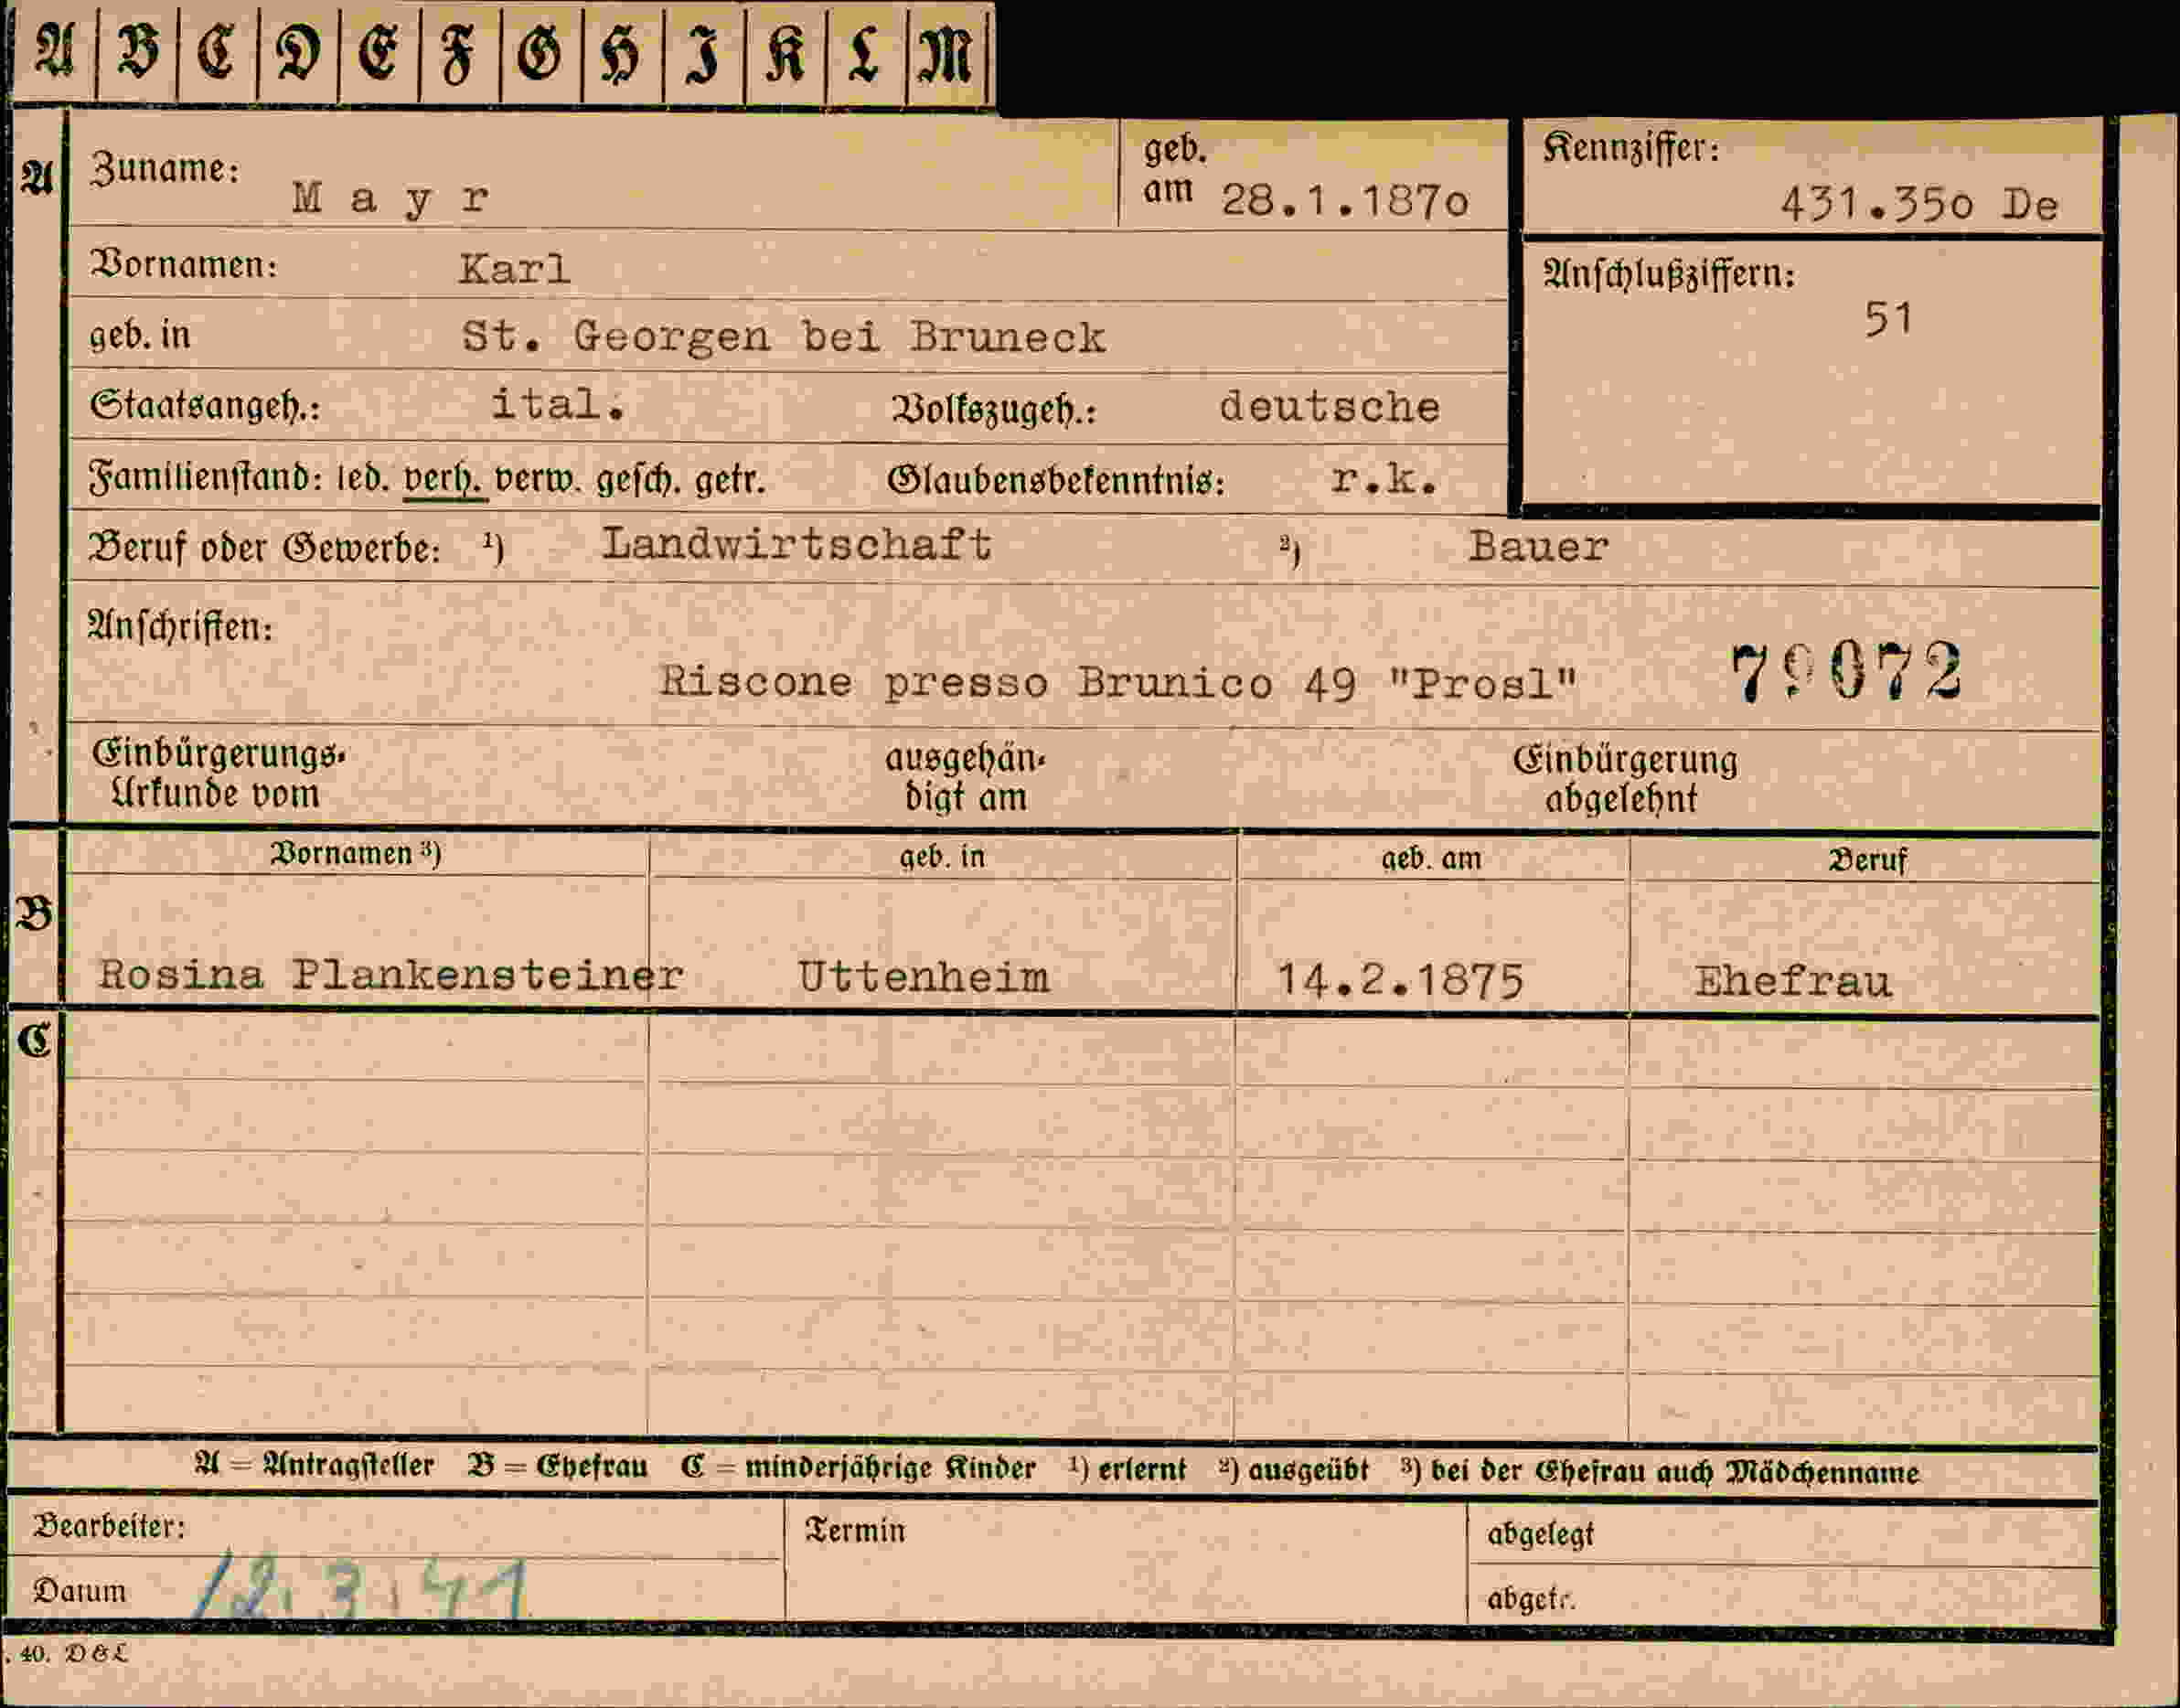 A B C D E F G H I K L M
A Zuname: Mayr geb. am 28.1.1870 Kennziffer: 431.350 De
Vornamen: Karl Anschlußziffern: 51
geb. in St. Georgen bei Bruneck
Staatsangeh.: ital. Volkszugeh.: deutsche
Familienstand: led. verh. verw. gesch. getr. Glaubensbekenntnis: r.k.
Beruf oder Gewerbe: ¹) Landwirtschaft ²) Bauer
Anschriften:
Riscone presso Brunico 49 "Prosl" 79072
Einbürgerungs- ausgehän- Einbürgerung
Urkunde vom digt am abgelehnt
Vornamen ³) geb. in geb. am Beruf
B
Rosina Plankensteiner Uttenheim 14.2.1875 Ehefrau
C
A = Antragsteller B = Ehefrau C = minderjährige Kinder ¹) erlernt ²) ausgeübt ³) bei der Ehefrau auch Mädchenname
Bearbeiter: Termin abgelegt
Datum 12.3.41 abgetr.
. 40. D & L